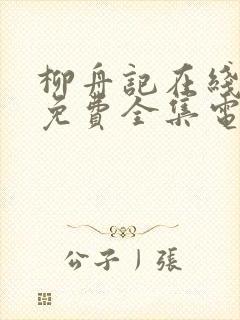 柳舟記在綫
免費全集電
公子 | 張